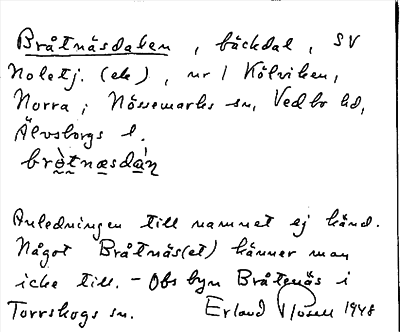 Bråtnäsdalen, bäckdal, SV
Noletj. (ek), nr 1 Kölviken,
Norra; Nössemarks sn, Vedbo hd,
Älvsborgs l.
brètnæsdàn
Anledningen till namnet ej känd.
Något Bråtnäs(et) känner man
icke till. - Obs byn Bråtenäs i
Torrskogs sn. Erland 1948